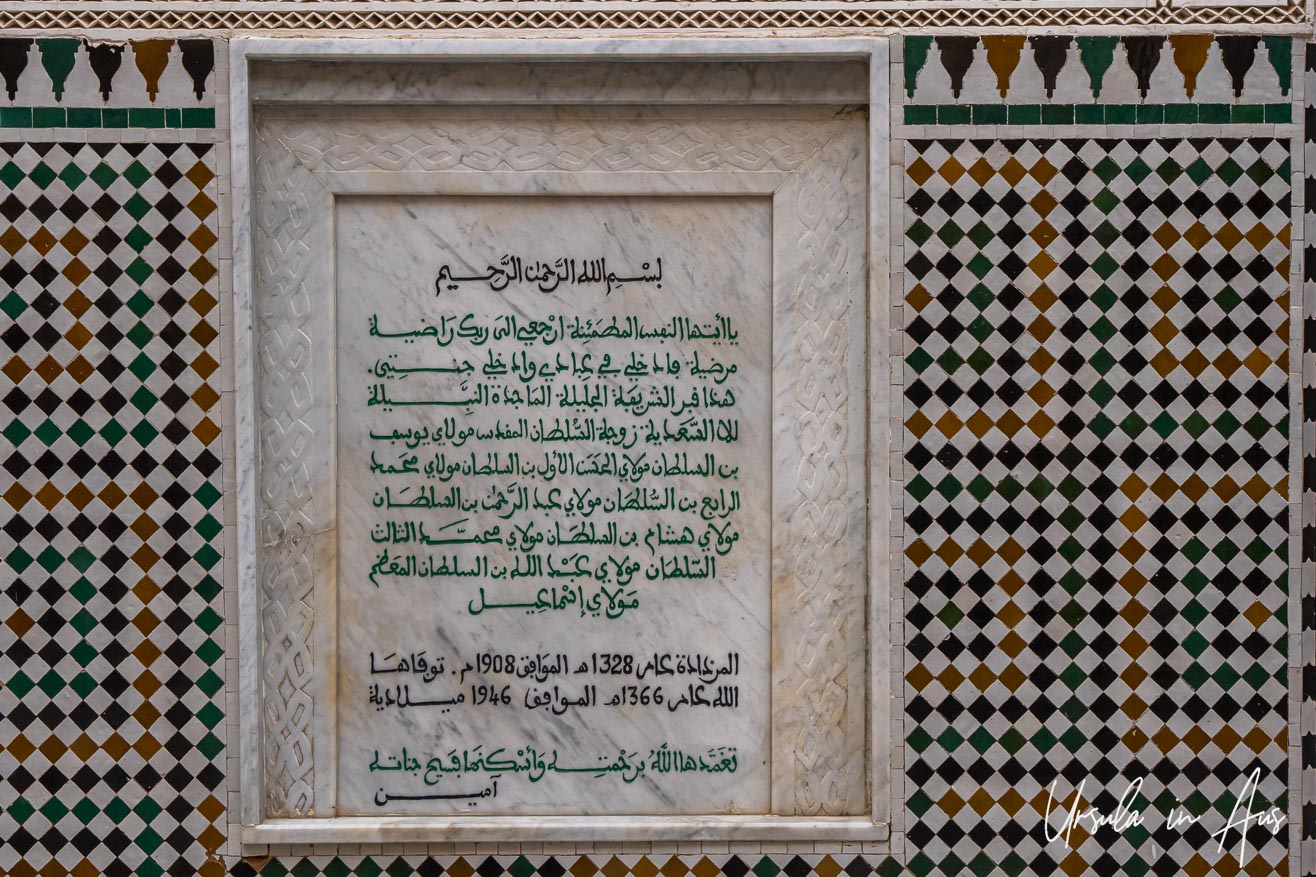 بِسْمِ اللهِ الرَّحْمٰنِ الرَّحِيمِ
يا أيتها النفس المطمئنة ارْجعي الى ربك رَاضية
مرضية فادخلي في عبادي وادخلي جنتي.
هذا قبر الشريفة الجليلة المَاجدة النَّبِيلة
للا السَّعدية زوجة السُّلطان المقدس مولاي يوسف
بن السلطان مولاي الحَسَن الأول بن السلطان مولاي محمد
الرابع بن السُّلطَان مولاي عبد الرَّحمٰن بن السلطَان
مولاي هشام بن السلطَان مولاي محمَّد الثالث
السّلطَان مولاي عَبْد الله بن السلطان المعَظم
مَولاي إسْمَاعيل
المزدادة عَام 1328هـ الموَافق 1908م. توفاهَا
الله عَام 1366هـ الموافق 1946 ميلادية
تغَمَّدها اللَّهُ برَحْمتِه وَأسْكنَها فسَيح جناته
آمين
Ursula in Aus